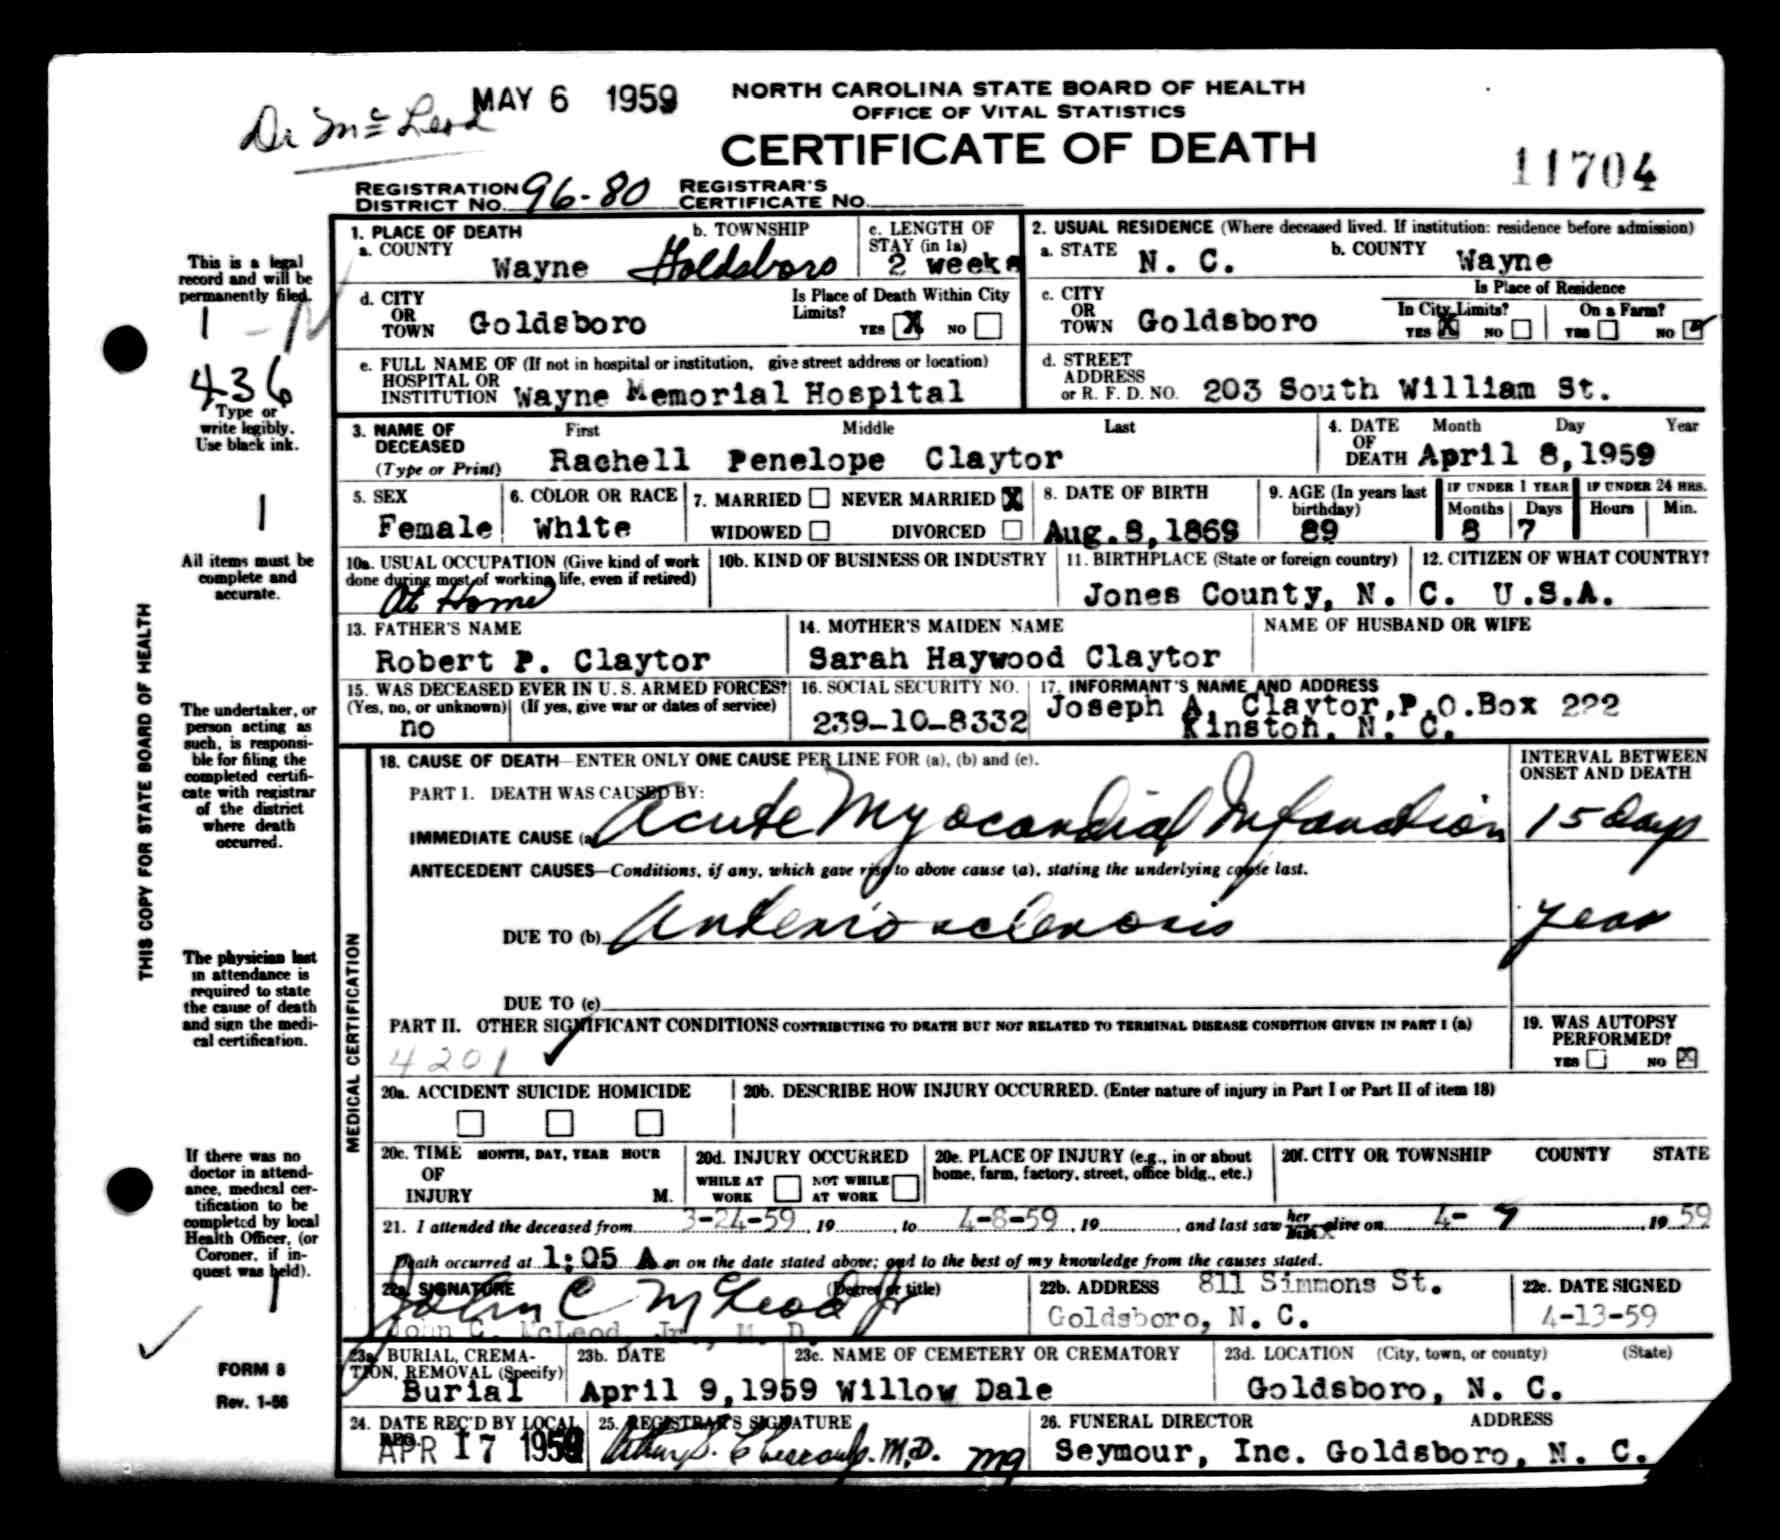 MAY 6 1959
Dr McLeod
NORTH CAROLINA STATE BOARD OF HEALTH
OFFICE OF VITAL STATISTICS
CERTIFICATE OF DEATH
11704
REGISTRATION DISTRICT NO. 96-80 REGISTRAR'S CERTIFICATE NO.
This is a legal
record and will be
permanently filed.
1 - N
436
Type or
write legibly.
Use black ink.
1
All items must be
complete and
accurate.
THIS COPY FOR STATE BOARD OF HEALTH
The undertaker, or
person acting as
such, is responsi-
ble for filing the
completed certifi-
cate with registrar
of the district
where death
occurred.
The physician last
in attendance is
required to state
the cause of death
and sign the medi-
cal certification.
If there was no
doctor in attend-
ance, medical cer-
tification to be
completed by local
Health Officer, (or
Coroner, if in-
quest was held).
1
FORM 8
Rev. 1-56
1. PLACE OF DEATH
a. COUNTY Wayne
b. TOWNSHIP Goldsboro
c. LENGTH OF STAY (in 1a) 2 weeks
2. USUAL RESIDENCE (Where deceased lived. If institution: residence before admission)
a. STATE N. C.
b. COUNTY Wayne
d. CITY OR TOWN Goldsboro
Is Place of Death Within City Limits? YES X NO
c. CITY OR TOWN Goldsboro
Is Place of Residence
In City Limits? YES X NO
On a Farm? YES NO
e. FULL NAME OF (If not in hospital or institution, give street address or location)
HOSPITAL OR
INSTITUTION Wayne Memorial Hospital
d. STREET ADDRESS or R. F. D. NO. 203 South William St.
3. NAME OF DECEASED (Type or Print)
First Middle Last
Rachell Penelope Claytor
4. DATE OF DEATH Month Day Year
April 8,1959
5. SEX Female
6. COLOR OR RACE White
7. MARRIED NEVER MARRIED X
WIDOWED DIVORCED
8. DATE OF BIRTH Aug.8,1869
9. AGE (In years last birthday) 89
IF UNDER 1 YEAR Months 8 Days 7
IF UNDER 24 HRS. Hours Min.
10a. USUAL OCCUPATION (Give kind of work
done during most of working life, even if retired)
At Home
10b. KIND OF BUSINESS OR INDUSTRY
11. BIRTHPLACE (State or foreign country)
Jones County, N. C.
12. CITIZEN OF WHAT COUNTRY?
U.S.A.
13. FATHER'S NAME
Robert P. Claytor
14. MOTHER'S MAIDEN NAME
Sarah Haywood Claytor
NAME OF HUSBAND OR WIFE
15. WAS DECEASED EVER IN U. S. ARMED FORCES?
(Yes, no, or unknown) (If yes, give war or dates of service)
no
16. SOCIAL SECURITY NO.
239-10-8332
17. INFORMANT'S NAME AND ADDRESS
Joseph A. Claytor,P.O.Box 222
Kinston, N. C.
MEDICAL CERTIFICATION
18. CAUSE OF DEATH—ENTER ONLY ONE CAUSE PER LINE FOR (a), (b) and (c).
INTERVAL BETWEEN
ONSET AND DEATH
PART I. DEATH WAS CAUSED BY:
IMMEDIATE CAUSE (a) Acute Myocardial Infarction 15 Days
ANTECEDENT CAUSES—Conditions, if any, which gave rise to above cause (a), stating the underlying cause last.
DUE TO (b) Arteriosclerosis year
DUE TO (c)
PART II. OTHER SIGNIFICANT CONDITIONS CONTRIBUTING TO DEATH BUT NOT RELATED TO TERMINAL DISEASE CONDITION GIVEN IN PART I (a)
4201
19. WAS AUTOPSY
PERFORMED?
YES NO X
20a. ACCIDENT SUICIDE HOMICIDE
20b. DESCRIBE HOW INJURY OCCURRED. (Enter nature of injury in Part I or Part II of item 18)
20c. TIME OF INJURY MONTH, DAY, YEAR HOUR M.
20d. INJURY OCCURRED
WHILE AT WORK NOT WHILE AT WORK
20e. PLACE OF INJURY (e.g., in or about
home, farm, factory, street, office bldg., etc.)
20f. CITY OR TOWNSHIP COUNTY STATE
21. I attended the deceased from 3-24-59, 19, to 4-8-59, 19, and last saw her him alive on 4-7, 19 59
Death occurred at 1:05 A m on the date stated above; and to the best of my knowledge from the causes stated.
22a. SIGNATURE (Degree or title)
John C McLeod Jr
John C. McLeod, Jr., M. D.
22b. ADDRESS 811 Simmons St.
Goldsboro, N. C.
22c. DATE SIGNED
4-13-59
23a. BURIAL, CREMA-
TION, REMOVAL (Specify)
Burial
23b. DATE
April 9,1959
23c. NAME OF CEMETERY OR CREMATORY
Willow Dale
23d. LOCATION (City, town, or county) (State)
Goldsboro, N. C.
24. DATE REC'D BY LOCAL
REG.
APR 17 1959
25. REGISTRAR'S SIGNATURE
M.D. mg
26. FUNERAL DIRECTOR ADDRESS
Seymour, Inc. Goldsboro, N. C.